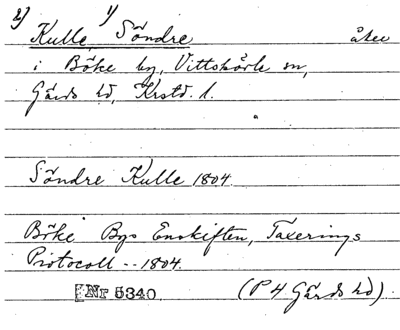 2) 1)
Kulle, Söndre åker
i Böke by, Vittskövle sn,
Gärds hd, Krstd. l.
Söndre Kulle 1804.
Böke Bys Enskiften, Taxerings
Protocoll -- 1804.
Nr 5340 (P 4 Gärds hd).